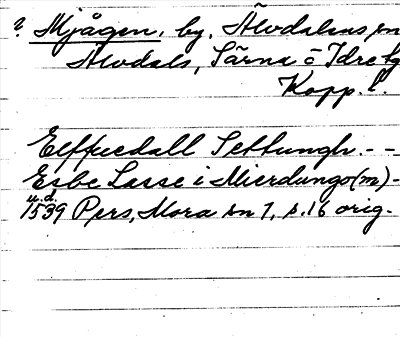 ? Mjågen, by, Älvdalens sn
Älvdals, Särna o Idre tg
Kopp. l.
Elffuedall Settungh. - -
Esbe Lasse i Mierdungs(m) -
u.d.
1539 Pers, Mora sn 1, s. 16 orig.